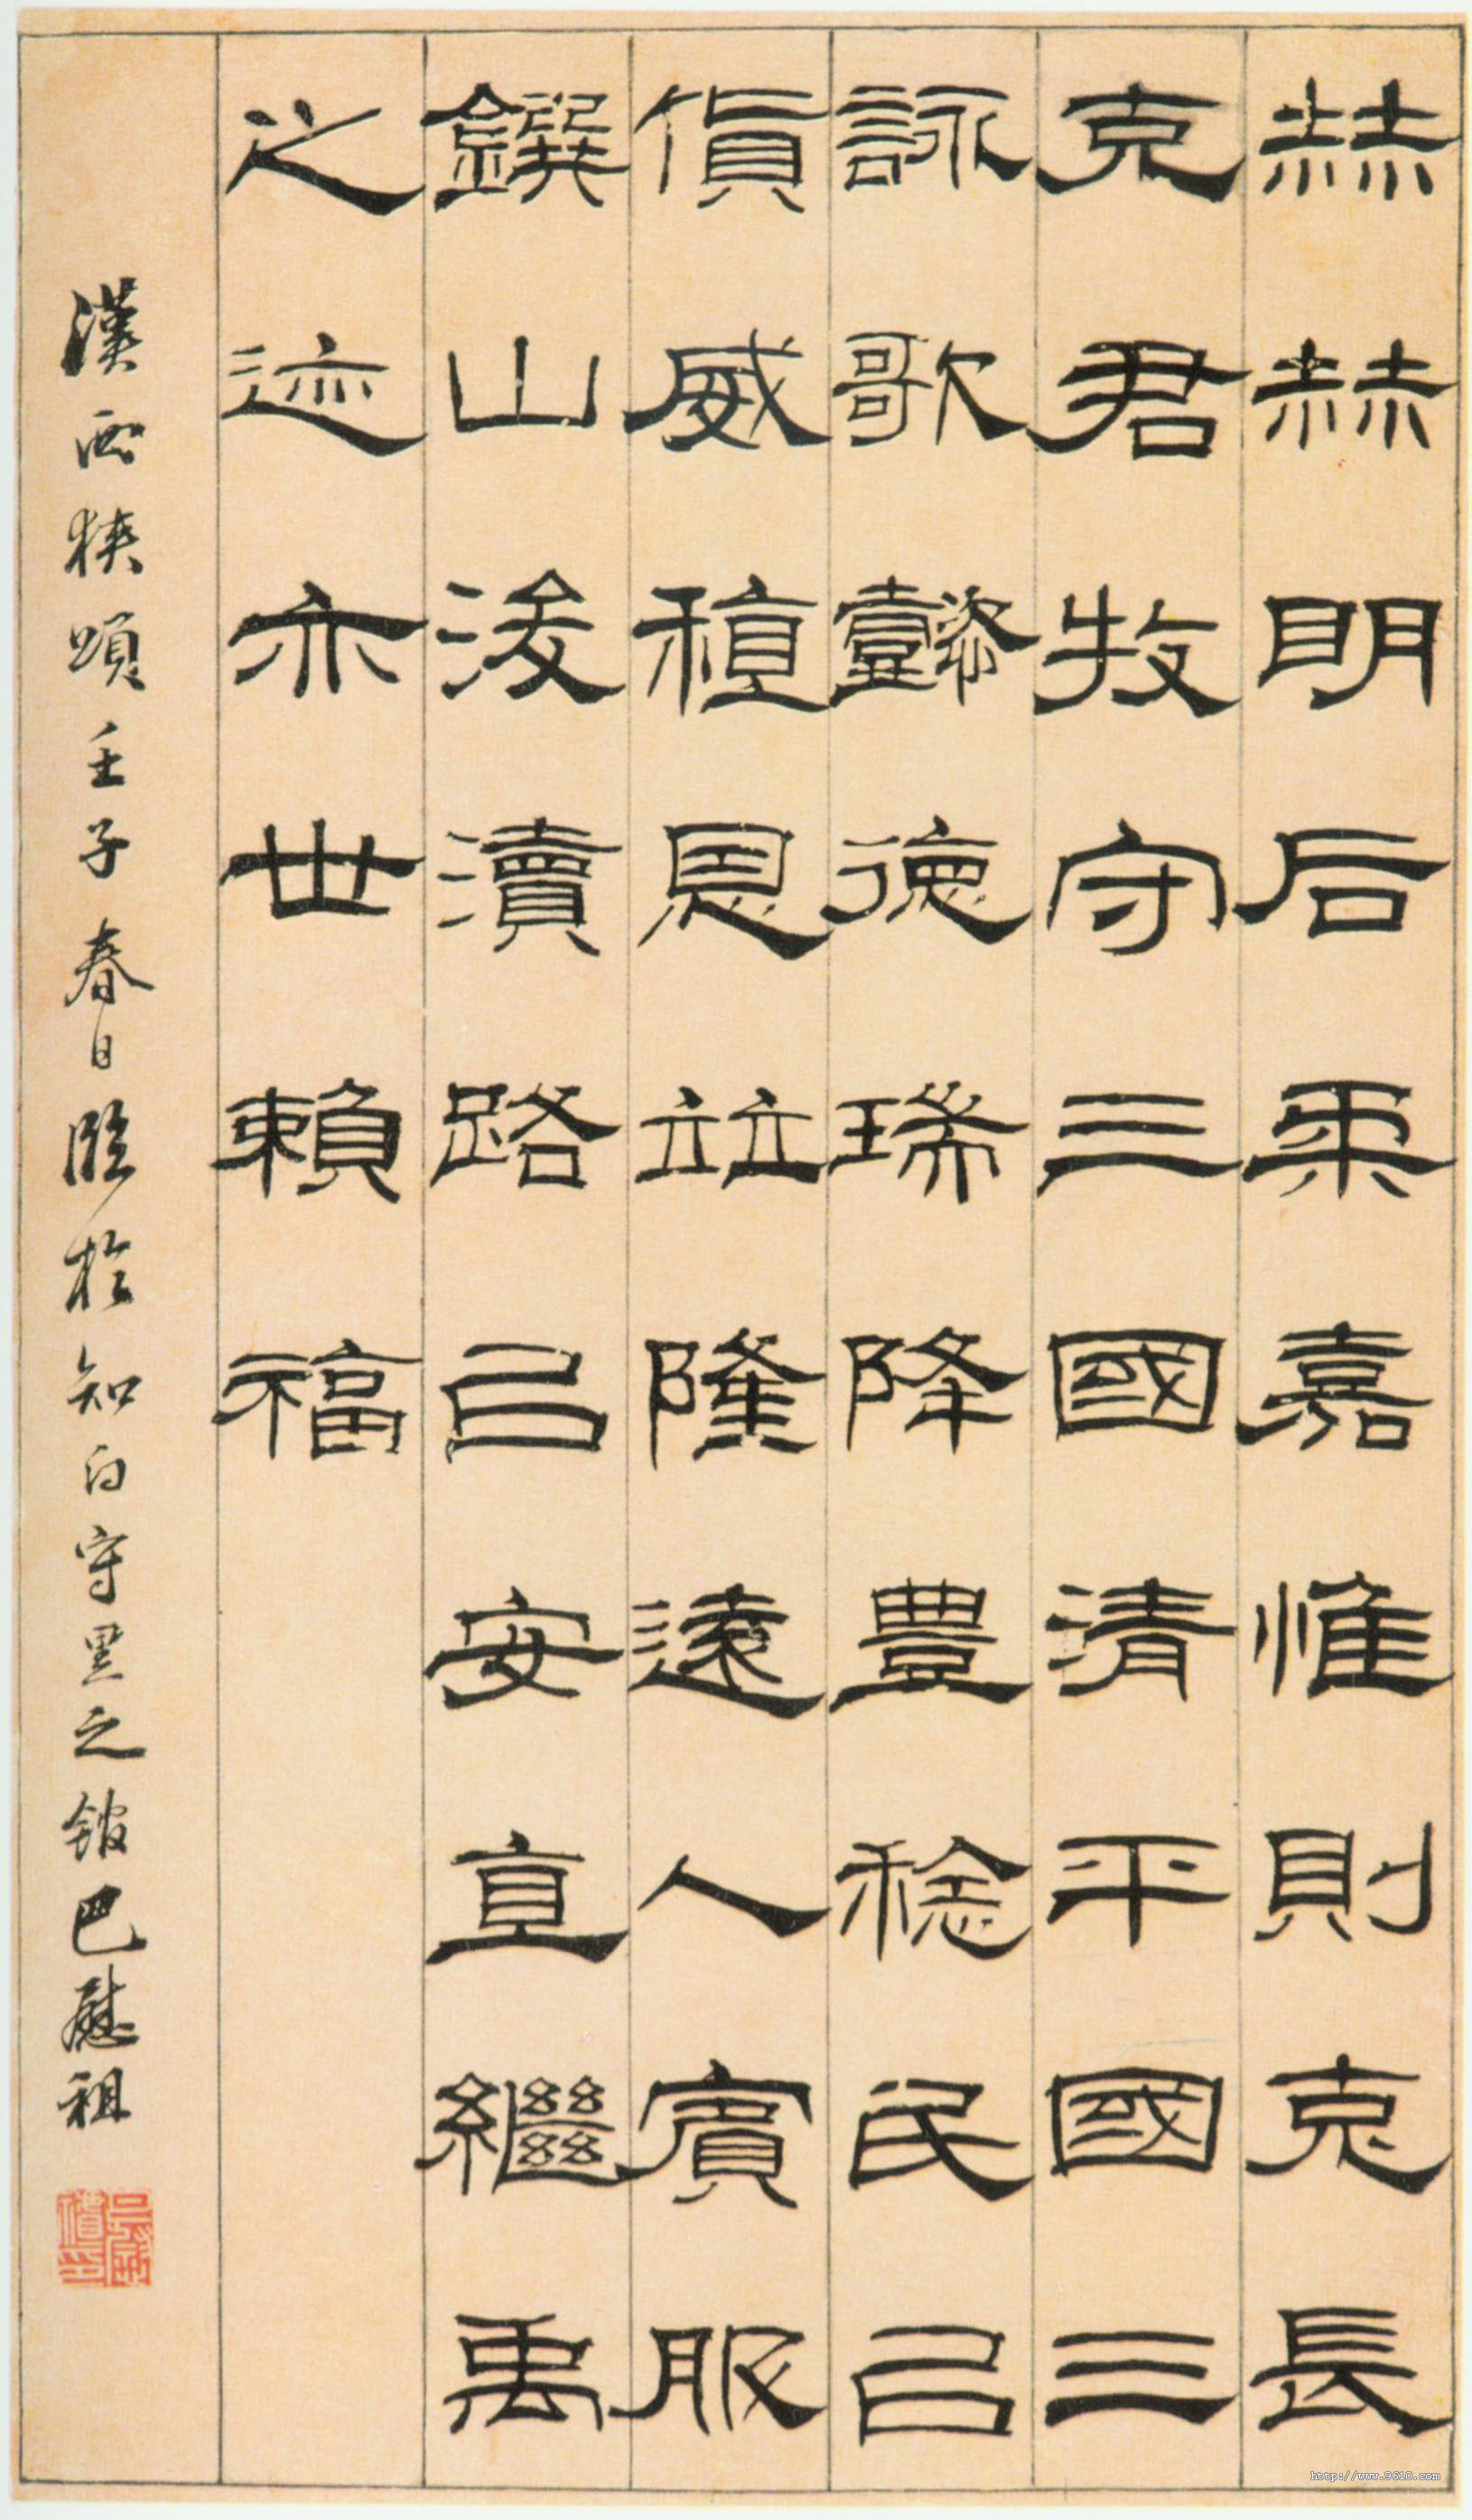 赫赫明后柔嘉惟則克長
克君牧守三國清平國三
詠歌懿德瑞降豊稔民㠯
貨威稙恩竝隆遠人賓服
鐉山浚瀆路㠯安直繼禹
之迹亦世賴福
漢西狹頌壬子春日臨於知白守黑之館巴慰祖
http://www.9610.com